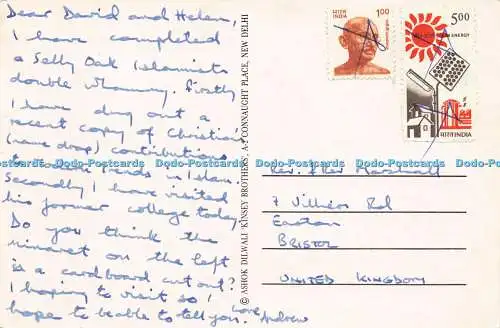 Dear David and Helen,
I have completed
a Selly Oak Islamists
double whammy. Firstly
I have dug out a
recent copy of Christie's
(name drop) contributions
to Trends in Islam.
Secondly I have visited
his former college today.
Do you think the
minaret on the left
is a cardboard cut out?
I hoping to visit so I
hope to be able to tell you.
Love
Andrew
© ASHOK DILWALI 'KINSEY BROTHERS', A-2 CONNAUGHT PLACE, NEW DELHI
भारत
INDIA
1.00
5.00
ENERGY
भारत INDIA
Rev. & Rev Marshall
7 Villiers Rd
Easton
BRISTOL
UNITED KINGDOM
Do-Postcards Do-Postcards Do-Postcards Do-Postcards Do-Postcards Do-Postcards